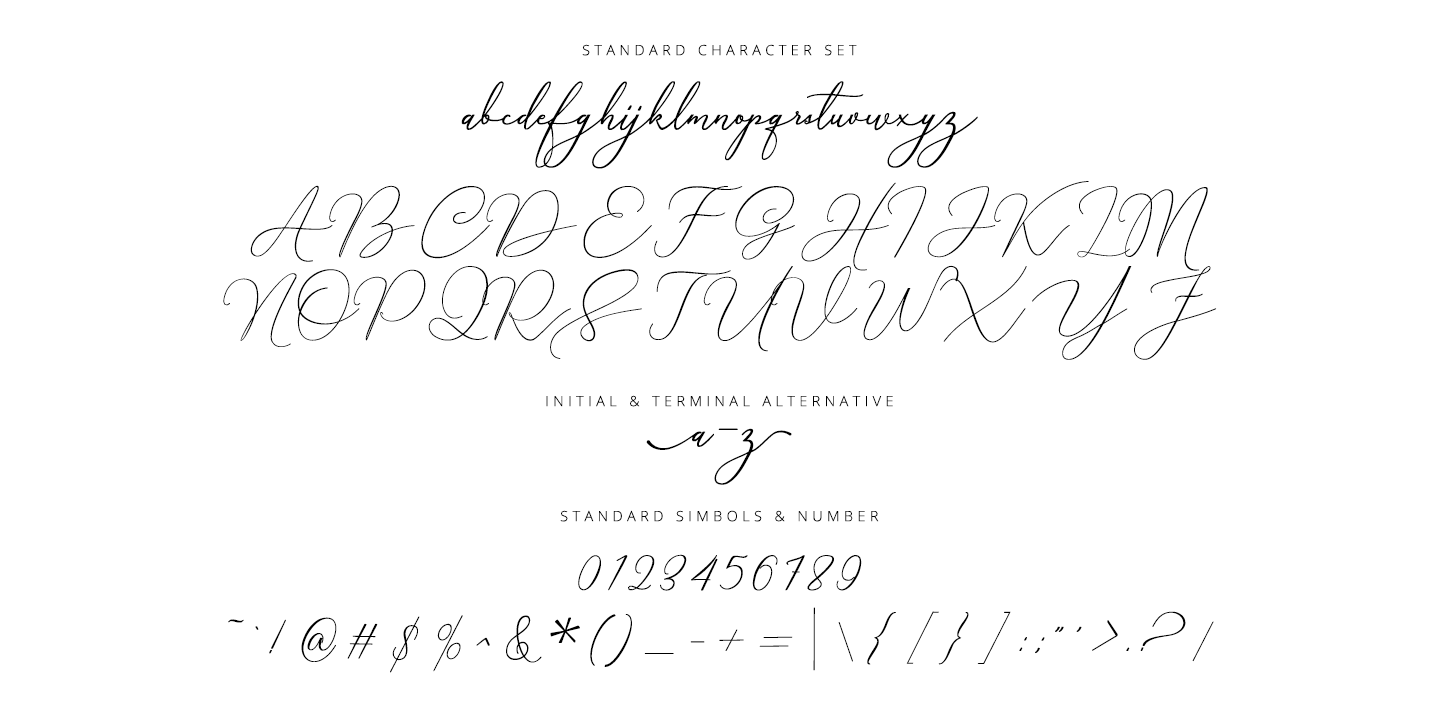 STANDARD CHARACTER SET
abcdefghijklmnopqrstuvwxyz
ABCDEFGHIJKLM
NOPQRSTUVWXYZ
INITIAL & TERMINAL ALTERNATIVE
a-z
STANDARD SIMBOLS & NUMBER
0123456789
~`!@#$%^&*()_-+=|\{[}]:;"'>.?/